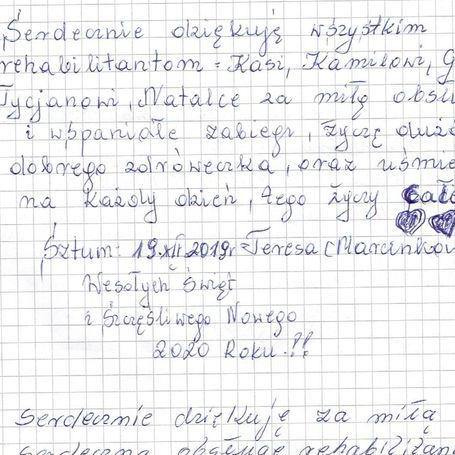 Serdecznie dziękuję wszystkim
rehabilitantom = Kasi, Kamilowi, G
Tycjanowi, Natalce za miłą obsłu
i wspaniałe zabiegi, życzę dużo
dobrego zdróweczka, oraz uśmie
na każdy dzień, tego życzy całe
Sztum: 19.XII.2019r = Teresa (Marcinkow
Wesołych Świąt
i Szczęśliwego Nowego
2020 Roku!!
Serdecznie dziękuję za miłą
serdeczną obsługę rehabilitan